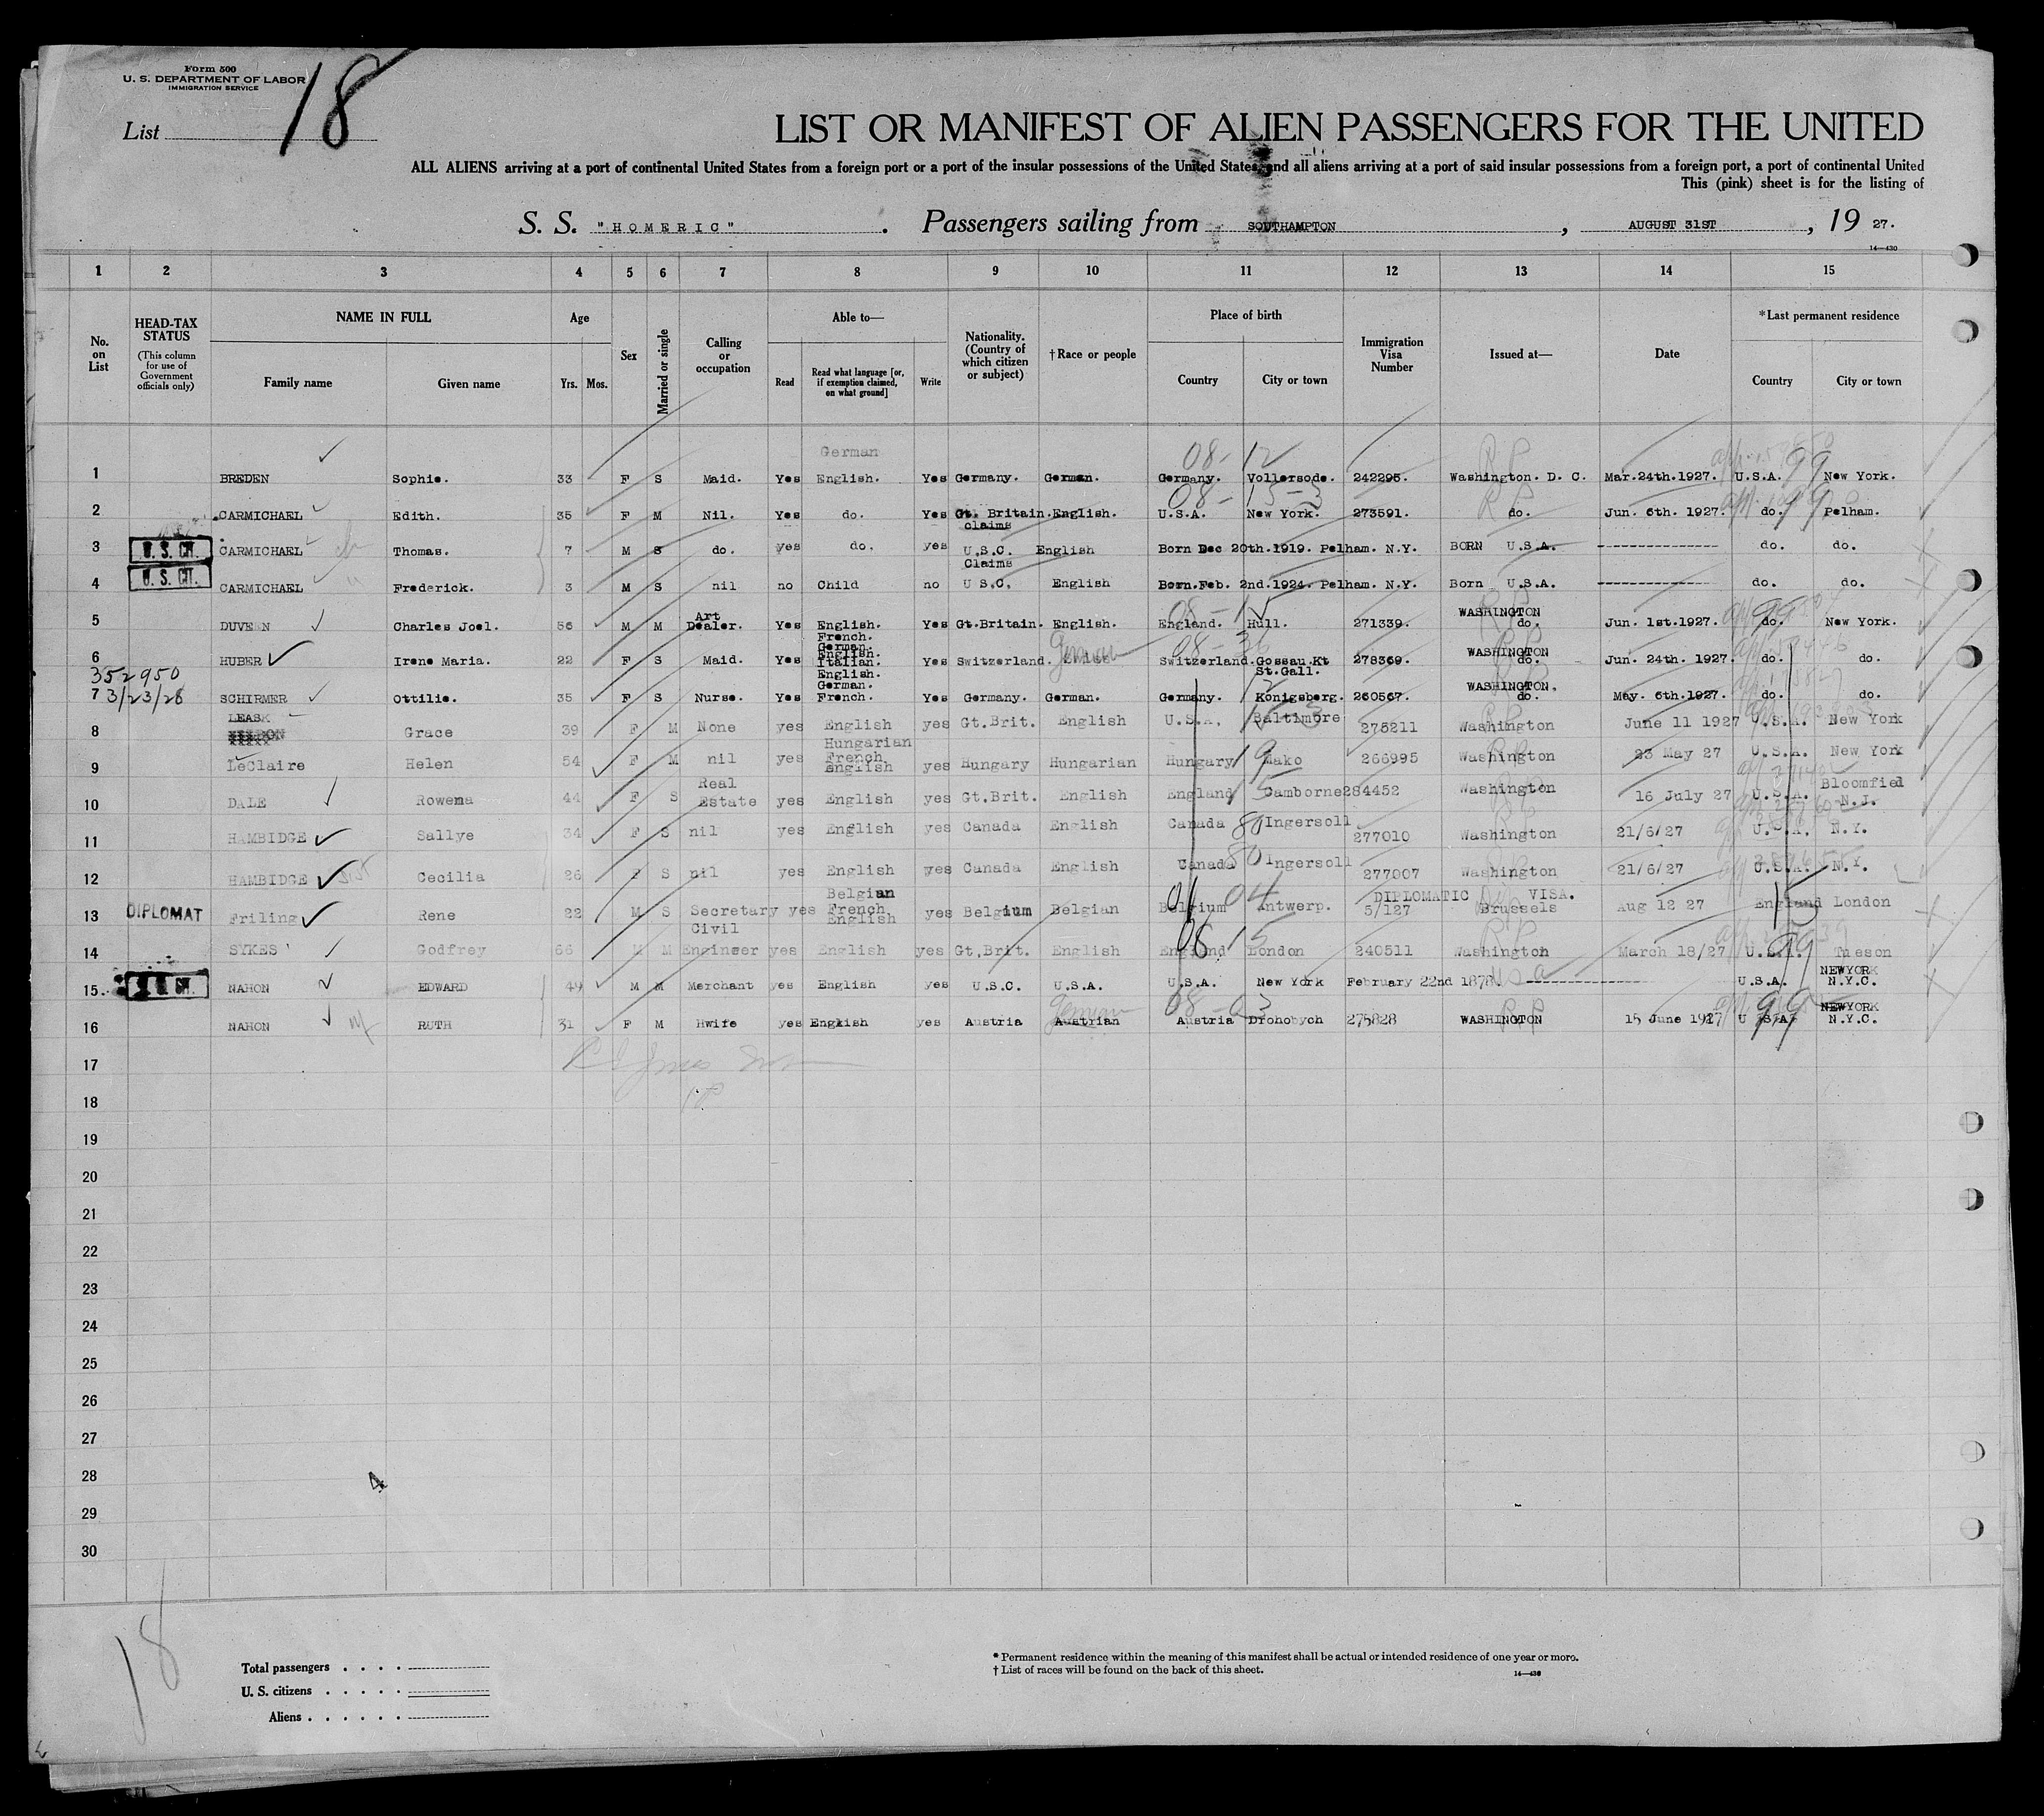 Form 500
U. S. DEPARTMENT OF LABOR
IMMIGRATION SERVICE
List 18
LIST OR MANIFEST OF ALIEN PASSENGERS FOR THE UNITED
ALL ALIENS arriving at a port of continental United States from a foreign port or a port of the insular possessions of the United States, and all aliens arriving at a port of said insular possessions from a foreign port, a port of continental United
This (pink) sheet is for the listing of
S. S. "HOMERIC". Passengers sailing from SOUTHAMPTON, AUGUST 31ST, 19 27.
14—430
1 2 3 4 5 6 7 8 9 10 11 12 13 14 15
No. on List
HEAD-TAX STATUS (This column for use of Government officials only)
NAME IN FULL Family name Given name
Age Yrs. Mos.
Sex
Married or single
Calling or occupation
Able to— Read Read what language [or, if exemption claimed, on what ground] Write
Nationality. (Country of which citizen or subject)
†Race or people
Place of birth Country City or town
Immigration Visa Number
Issued at—
Date
*Last permanent residence Country City or town
1 BREDEN Sophie. 33 F S Maid. Yes German English. Yes Germany. German. 08-12 Germany. Vollersode. 242295. Washington. D. C. Mar.24th.1927. U.S.A. 99 New York.
2 CARMICHAEL Edith. 35 F M Nil. Yes do. Yes Gt. Britain. English. 08-15-3 U.S.A. New York. 273591. do. Jun. 6th. 1927. do. 99 Pelham.
3 U.S. CIT. CARMICHAEL ch Thomas. 7 M S do. yes do. yes claims U.S.C. English Born Dec 20th.1919. Pelham. N.Y. BORN U.S.A. do. do.
4 U.S. CIT. CARMICHAEL " Frederick. 3 M S nil no Child no Claims U S C. English Born.Feb. 2nd.1924. Pelham. N.Y. Born U.S.A. do. do.
5 DUVEEN Charles Joel. 56 M M Art Dealer. Yes English. Yes Gt.Britain. English. England. Hull. 271339. WASHINGTON do. Jun. 1st.1927. do. New York.
6 HUBER Irene Maria. 22 F S Maid. Yes French. German. English. Italian. Yes Switzerland. German 08-36 Switzerland. Gossau.Kt St.Gall. 278369. WASHINGTON do. Jun. 24th. 1927. do. do.
352950
7 3/23/28 SCHIRMER Ottilie. 35 F S Nurse. Yes English. German. French. Yes Germany. German. Germany. Konigsberg. 260567. WASHINGTON. do. May. 6th.1927. do. do.
8 LEASK Grace 39 F M None yes English yes Gt.Brit. English U.S.A. Baltimore 275211 Washington June 11 1927 U.S.A. New York
9 LeClaire Helen 54 F M nil yes Hungarian French English yes Hungary Hungarian Hungary Mako 266995 Washington 23 May 27 U.S.A. New York
10 DALE Rowena 44 F S Real Estate yes English yes Gt.Brit. English England Camborne 284452 Washington 16 July 27 U.S.A. Bloomfield N.J.
11 HAMBIDGE Sallye 34 F S nil yes English yes Canada English Canada 80 Ingersoll 277010 Washington 21/6/27 U.S.A. N.Y.
12 HAMBIDGE Sist Cecilia 26 F S nil yes English yes Canada English Canada 80 Ingersoll 277007 Washington 21/6/27 U.S.A. N.Y.
13 DIPLOMAT Friling Rene 22 M S Secretary yes Belgian French English yes Belgium Belgian Belgium 04 Antwerp. DIPLOMATIC VISA. 5/127 Brussels Aug 12 27 England London
14 SYKES Godfrey 66 M M Civil Engineer yes English yes Gt.Brit. English 08 15 England London 240511 Washington March 18/27 U.S.A. 99 Tueson
15. U.S. CIT. NAHON EDWARD 49 M M Merchant yes English yes U.S.C. U.S.A. U.S.A. New York February 22nd 1878 usa U.S.A. NEWYORK N.Y.C.
16 NAHON wf RUTH 31 F M Hwife yes English yes Austria German Austrian 08-03 Austria Drohobych 275828 WASHINGTON 15 June 1927 U S A 99 NEWYORK N.Y.C.
17
18
19
20
21
22
23
24
25
26
27
28
4
29
30
18
Total passengers
U. S. citizens
Aliens
* Permanent residence within the meaning of this manifest shall be actual or intended residence of one year or more.
† List of races will be found on the back of this sheet.
14—430